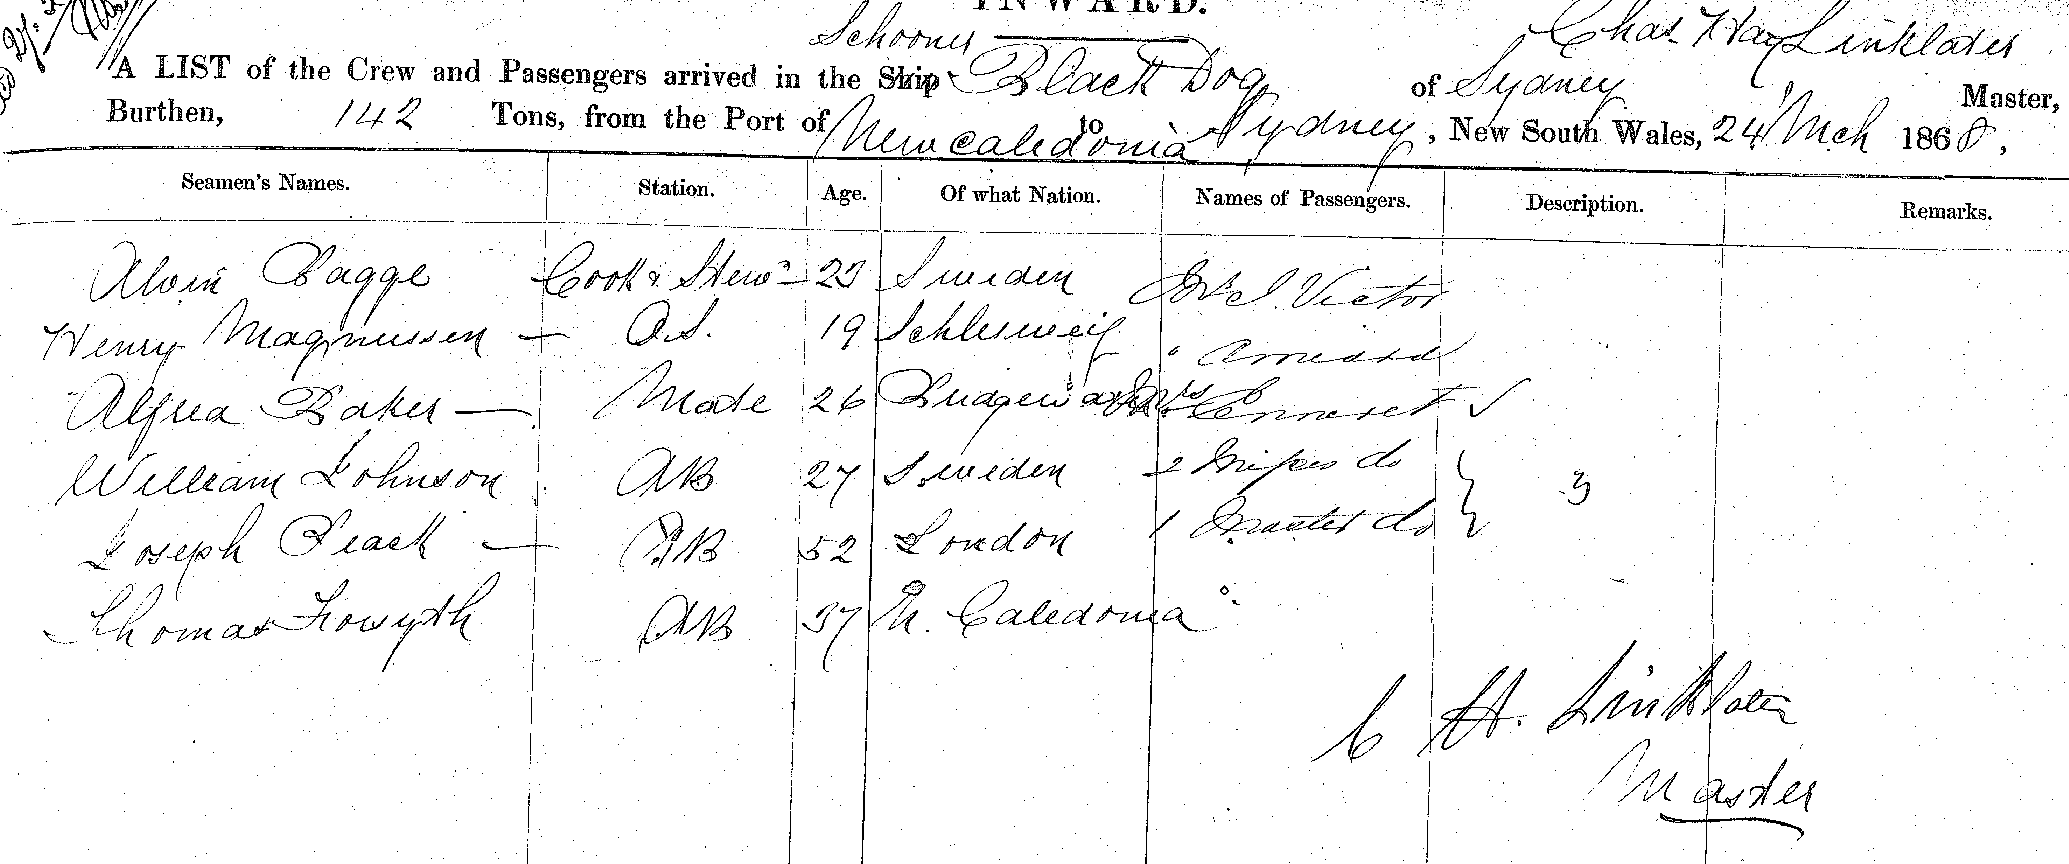 INWARD.
Schooner
Chas Hay Linklater
A LIST of the Crew and Passengers arrived in the Ship Black Dog of Sydney Master,
Burthen, 142 Tons, from the Port of Newcaledonia to Sydney, New South Wales, 24 Mch 1868,
Seamen's Names. Station. Age. Of what Nation. Names of Passengers. Description. Remarks.
Alvin Bagge Cook & Stewd 23 Sweden Mr S. Victor
Henry Magnussen — O.S. 19 Schlesweig "
Alfred Baker — Mate 26 Mrs
William Johnson AB 27 Sweden 2 Misses do
Joseph Peack — AB 52 London 1 Master do } 3
Thomas Forsyth AB 37 N. Caledonia
C H. Linklater
Master